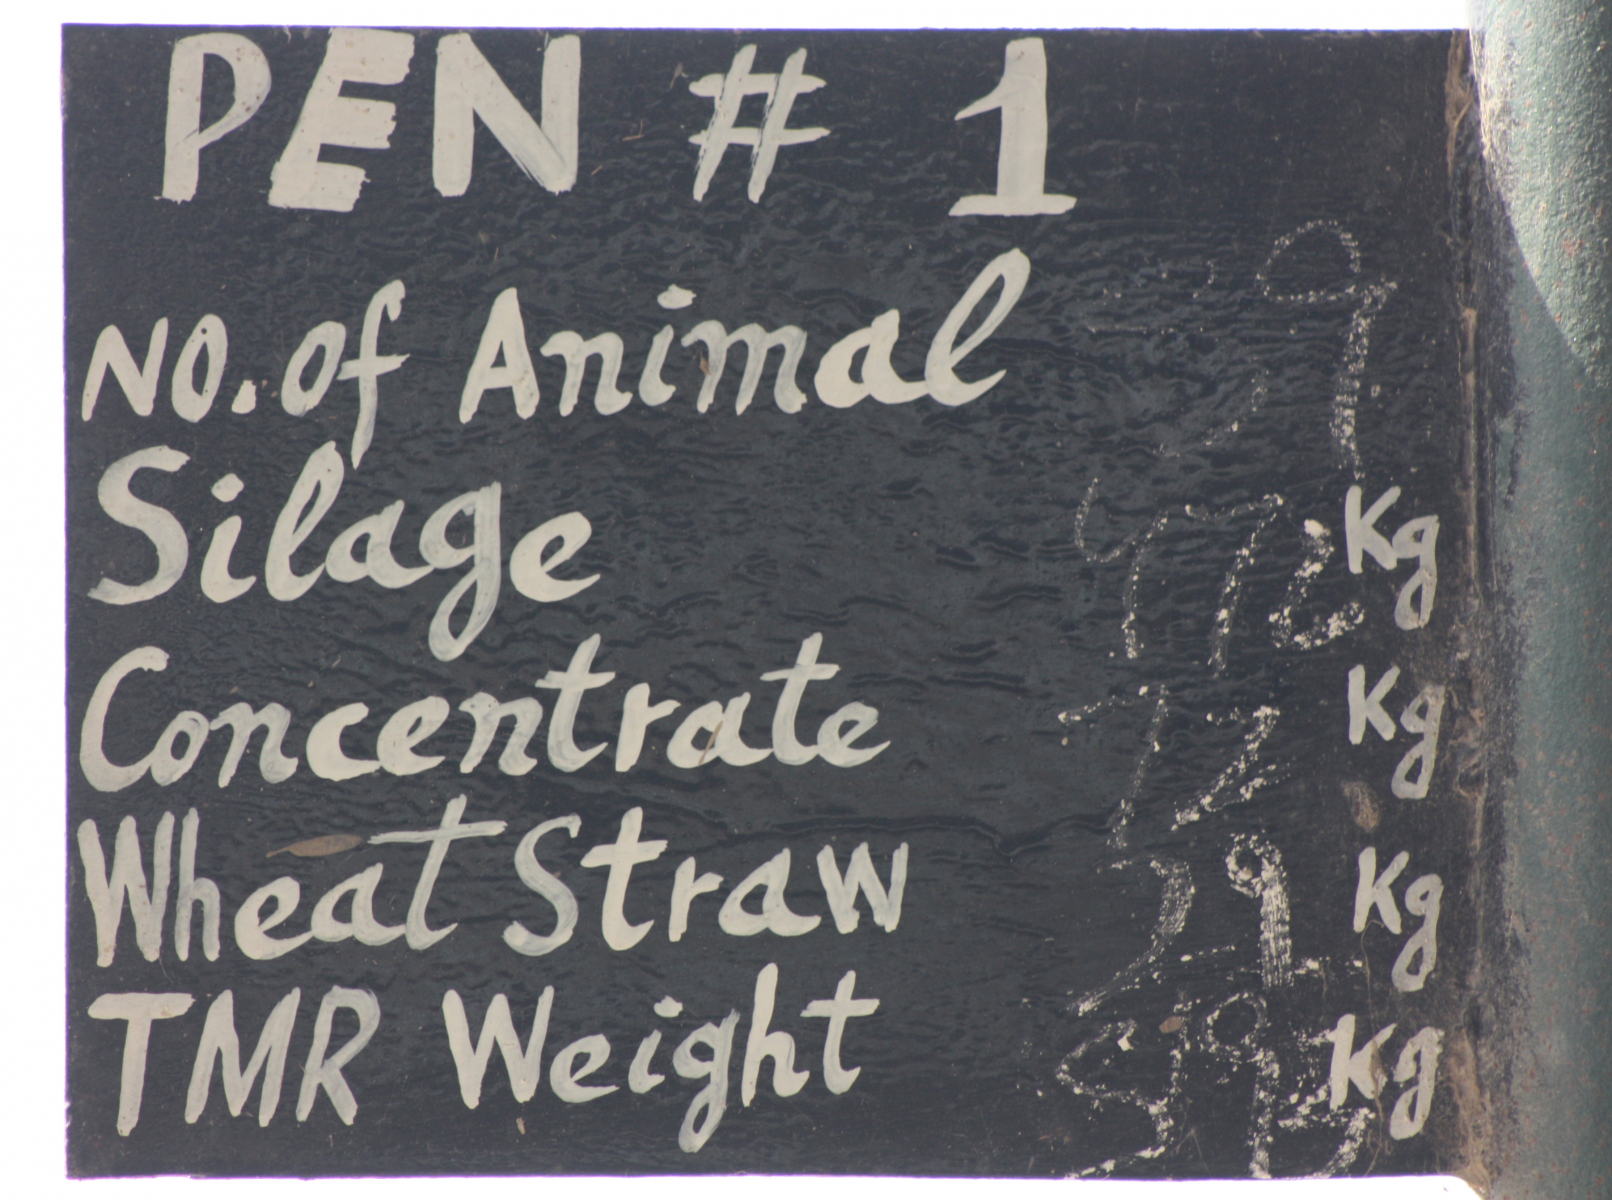 PEN # 1
NO. of Animal
Silage Kg
Concentrate 72 Kg
Wheat Straw Kg
TMR Weight Kg